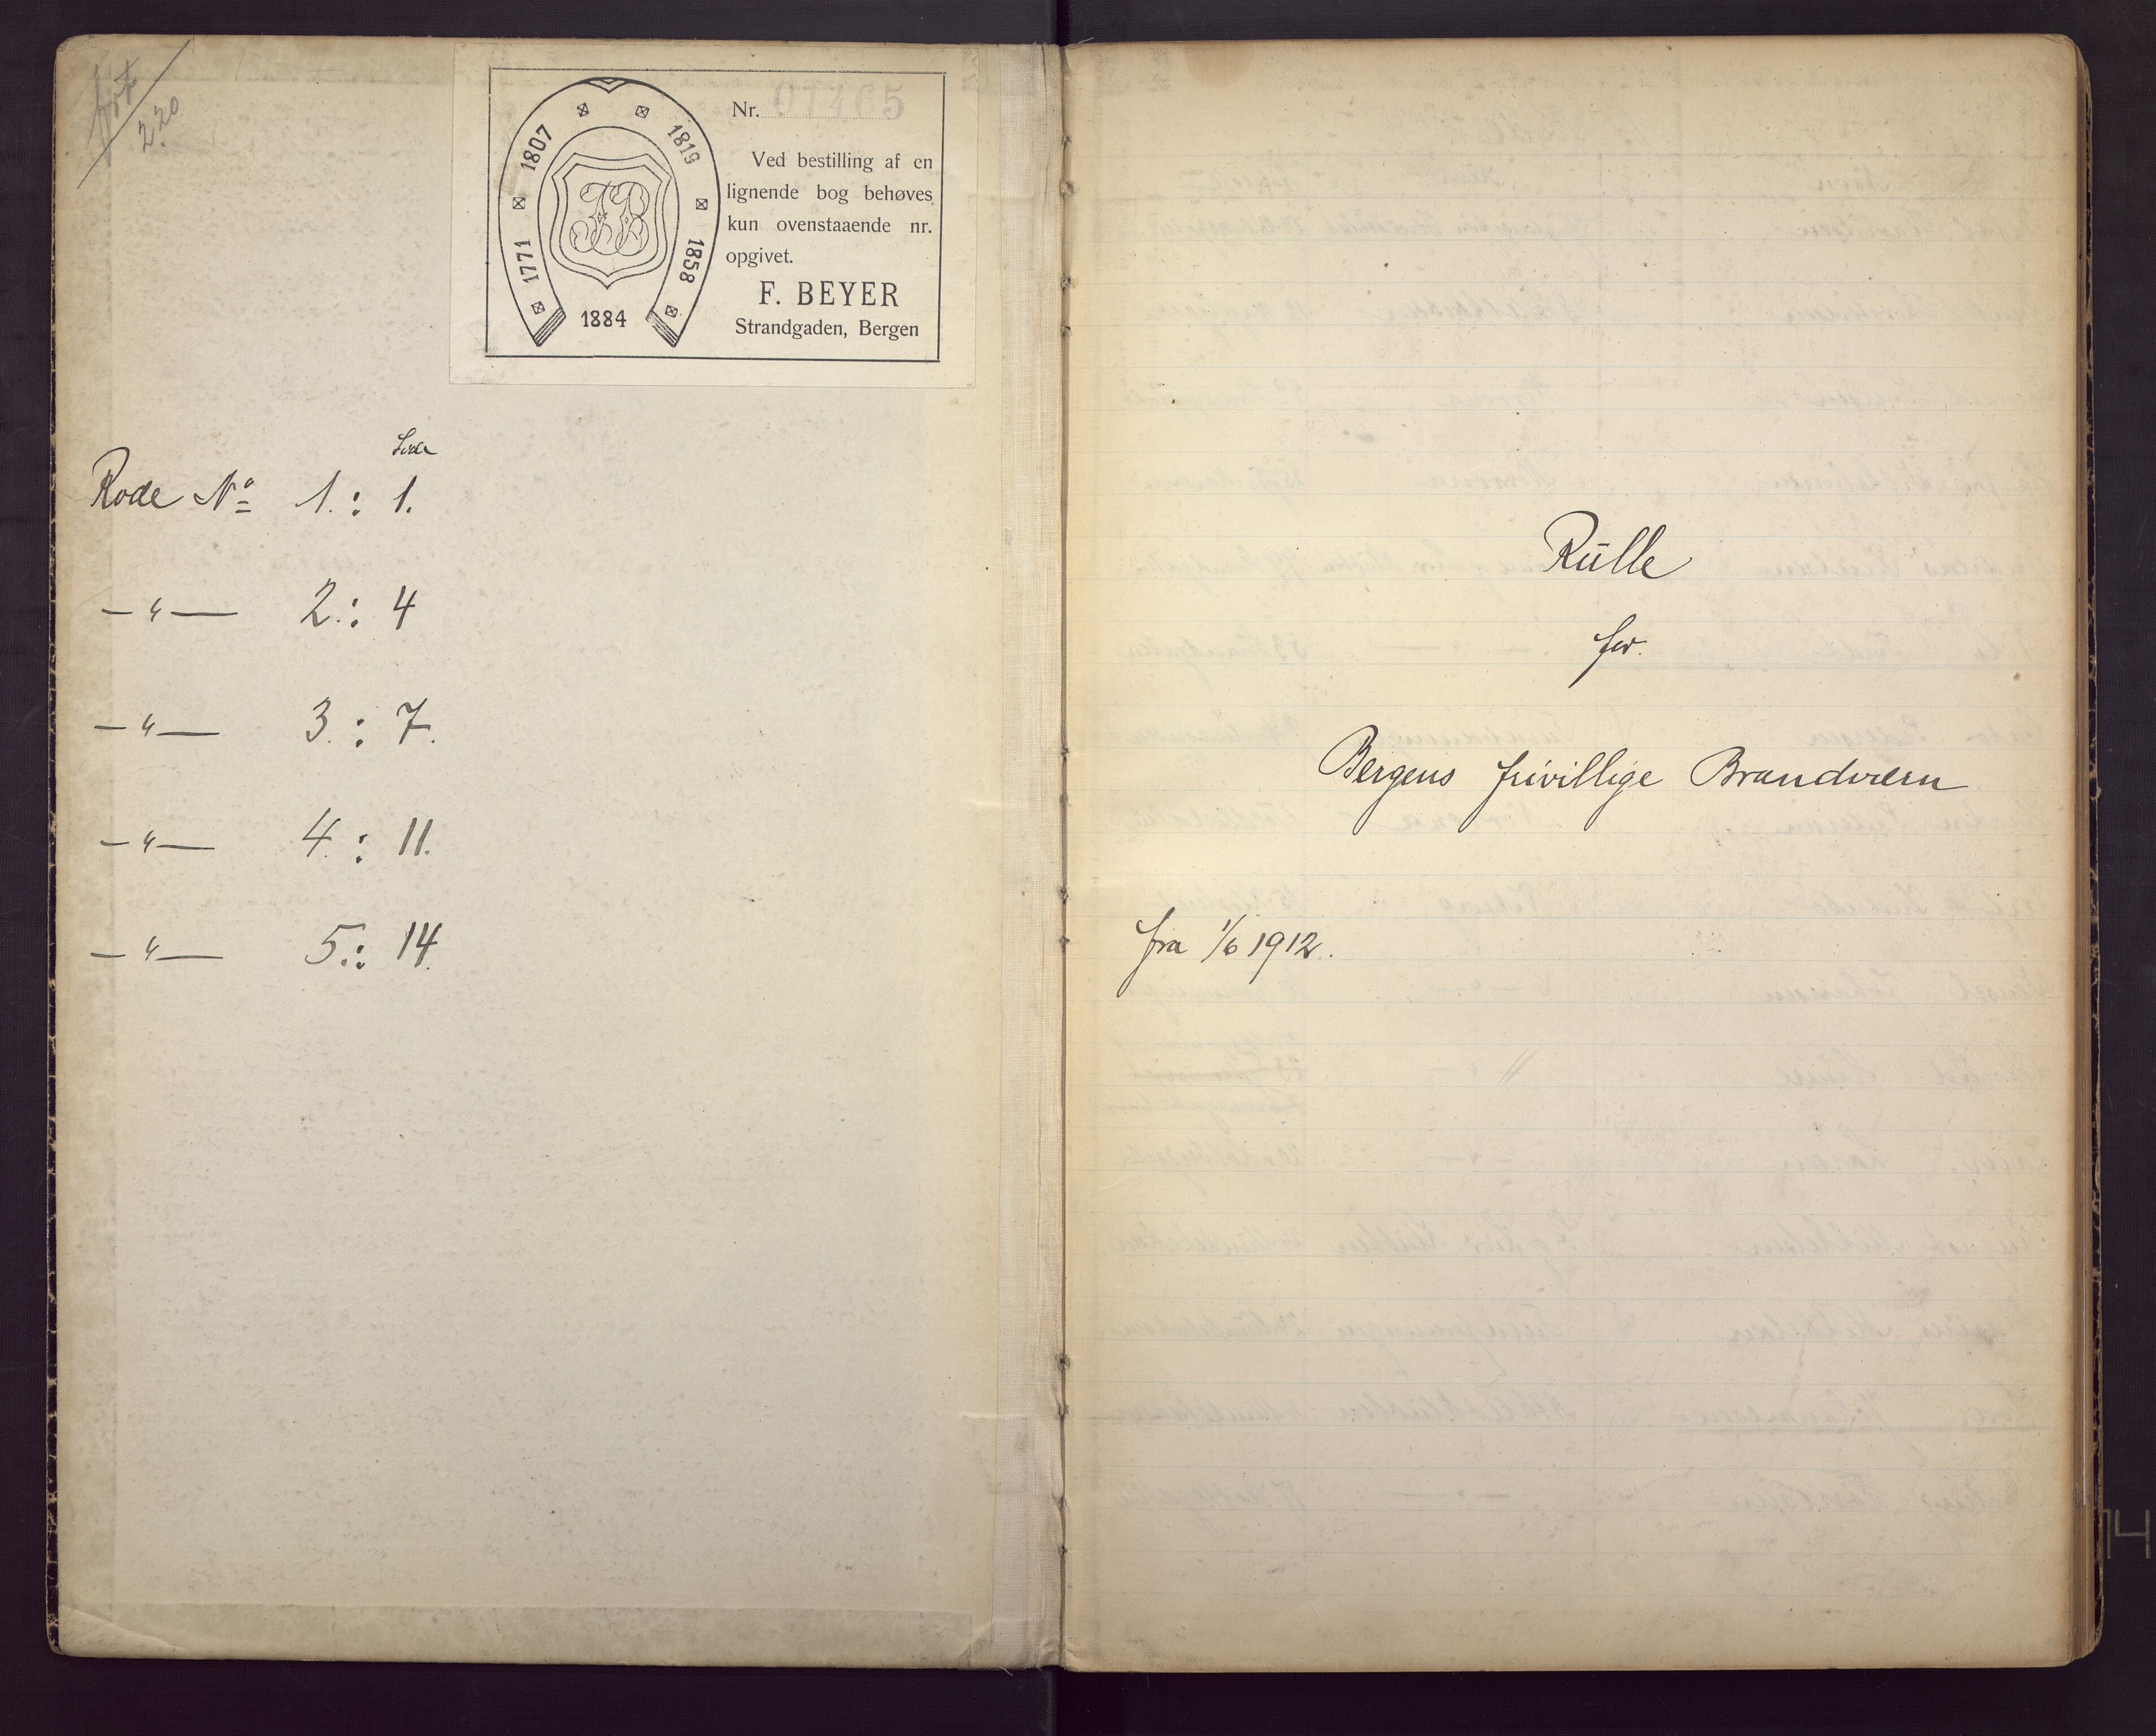 220
1771
1807
1819
1858
1884
FB
Nr. 07465
Ved bestilling af en
lignende bog behøves
kun ovenstaaende nr.
opgivet.
F. BEYER
Strandgaden, Bergen
Side
Rode No 1. : 1.
— " — 2. : 4
— " — 3. : 7.
— " — 4. : 11.
— " — 5. : 14.
Rūlle
for
Bergens frivillige Brandværn
fra 1/6 1912.